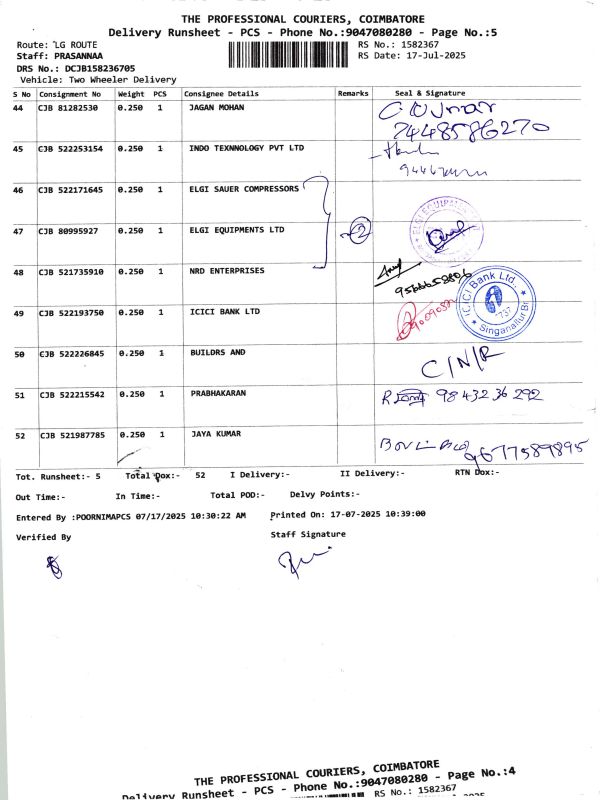 THE PROFESSIONAL COURIERS, COIMBATORE
Delivery Runsheet - PCS - Phone No.:9047080280 - Page No.:5
Route: LG ROUTE
Staff: PRASANNAA
DRS No.: DCJB158236705
Vehicle: Two Wheeler Delivery
RS No.: 1582367
RS Date: 17-Jul-2025
S No Consignment No Weight PCS Consignee Details Remarks Seal & Signature
44 CJB 81282530 0.250 1 JAGAN MOHAN
7448586270
45 CJB 522253154 0.250 1 INDO TEXNNOLOGY PVT LTD
46 CJB 522171645 0.250 1 ELGI SAUER COMPRESSORS
47 CJB 80995927 0.250 1 ELGI EQUIPMENTS LTD 2
48 CJB 521735910 0.250 1 NRD ENTERPRISES
49 CJB 522193750 0.250 1 ICICI BANK LTD
ICICI Bank Ltd.
Singanallur Br
50 CJB 522226845 0.250 1 BUILDRS AND C/N/R
51 CJB 522215542 0.250 1 PRABHAKARAN 9843236292
52 CJB 521987785 0.250 1 JAYA KUMAR 9677589895
Tot. Runsheet:- 5 Total Dox:- 52 I Delivery:- II Delivery:- RTN Dox:-
Out Time:- In Time:- Total POD:- Delvy Points:-
Entered By :POORNIMAPCS 07/17/2025 10:30:22 AM Printed On: 17-07-2025 10:39:00
Verified By Staff Signature
THE PROFESSIONAL COURIERS, COIMBATORE
Delivery Runsheet - PCS - Phone No.:9047080280 - Page No.:4
RS No.: 1582367